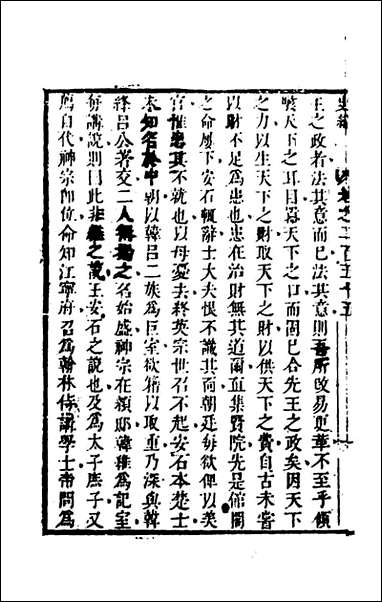 史緯 卷之二百五十五
王之政者法其意而已法其意則吾所改易更革不至乎傾
駭天下之耳目囂天下之口而固已合先王之政矣因天下
之力以生天下之財取天下之財以供天下之費自古未嘗
以財不足為患也患在治財無其道爾直集賢院先是館閣
之命屢下安石輒辭士大夫恨不識其面朝廷每欲俾以美
官惟患其不就也以母憂去終英宗世召不起安石本楚士
未知名於中朝以韓呂二族為巨室欲藉以取重乃深與韓
絳呂公著交二人稱揚之名始盛神宗在潁邸韓維為記室
每講說則曰此非維之說王安石之說也及為太子庶子又
薦自代神宗即位命知江寧府召為翰林侍講學士帝問為